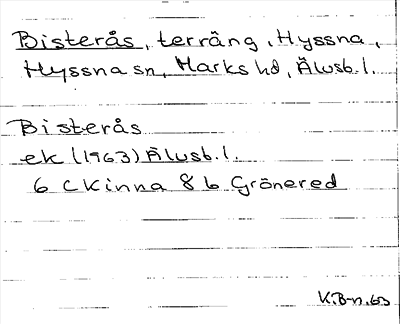 Bisterås, terräng, Hyssna,
Hyssna sn, Marks hd, Älvsb. l.
Bisterås
ek (1963) Älvsb. l.
6 C Kinna 8 b Grönered